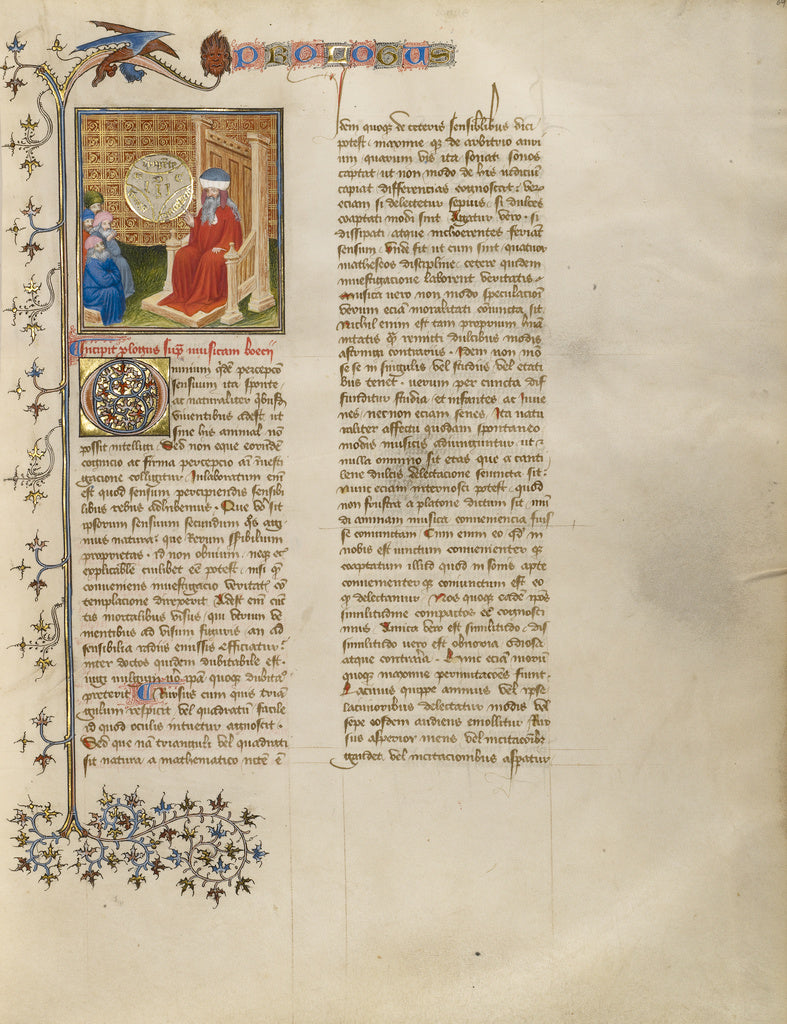 PROLOGUS
Incipit plogus sup musicam boecii
Omnium qdē percepcō
sensuum ita sponte
ac naturaliter qbusd
viventibus adest ut
sine his animal nō
possit intelligi. Sed non eque eorūde
cognicio ac firma percepcio aīi īvesti
gacione colligitur. Inlaboratum eīm
est quod sensum percipiendis sensibi
libus rebus adhibemus. Que vō sit
ipsorum sensuum secundum qs agi
mus natura: que rerum sēsibilium
proprietas. id non obvium. neqz ex
explicabile cuilibet eē potest. nisi q
conveniens investigacio veritatis cō
templacione direxerit. Adest eīm cūc
tis mortalibus visus. qui utrum ve
nientibus ad visum figuris an ad
sensibilia radiis emissis efficiatur:
inter doctos quidem dubitabile est.
vulgum vō ipām quoqz dubitaō
preterit. Rursus cum quis trian
gulum respicit vel quadratū facile
id quod oculis intuetur agnoscit.
Sed que nā trianguli vel quadrati
sit natura a mathematico necē ē
Idem quoqz de ceteris sensibilibus dici
potest. maxime qz de arbitrio auri
ium quarum vis ita sonat sonos
captat ut non modo de his iudicium
capiat differencias cognoscat: ver
eciam si delectetur sepius. si dulces
coaptati modi sint. Angatur vero. si
dissipati atque incoherentes feriāt
sensum. Unde fit ut cum sint quatuor
matheseos discipline. cetere quidem
investigacione laborent veritatis.
Musica vero non modo speculacioni
verum eciā moralitati coniuncta sit.
Nichil enim est tam proprium huā
nitatis q remitti dulcibus modis
astringi contrariis. Idem non mō
sese in singulis vel studiis vel etati
bus tenet. verum per cuncta dif
funditur studia. et infantes ac iuve
nes. necnon eciam senes. Ita natu
raliter affectu quodam spontaneo
modis musicis adiunguntur. ut
nulla omnino sit etas que a canti
lene dulcis delectacione seiuncta sit.
Hinc eciam internosci potest. quod
non frustra a platone dictum sit. mū
di animam musica conveniencia fuis
se coniunctam. Cum enim eo qd in
nobis est iunctum convenienter qz
coaptatum illud quod in sonis apte
convenienter qz coniunctum est eo
qz delectamur. Nos quoqz eadē ipōs
similitudine compactos eē cognosci
mus. Amica vero est similitudo. dis
similitudo vero est odiosa
atque contraria. Hinc eciā morū
quoqz maxime permutacōes fiunt.
Lacivus quippe animus vel ipse
lacivioribus delectatur modis vel
sepe eosdem audiens emollitur. Rur
sus asperior mens vel incitacioribz
gaudet. vel incitacionibus aspatur